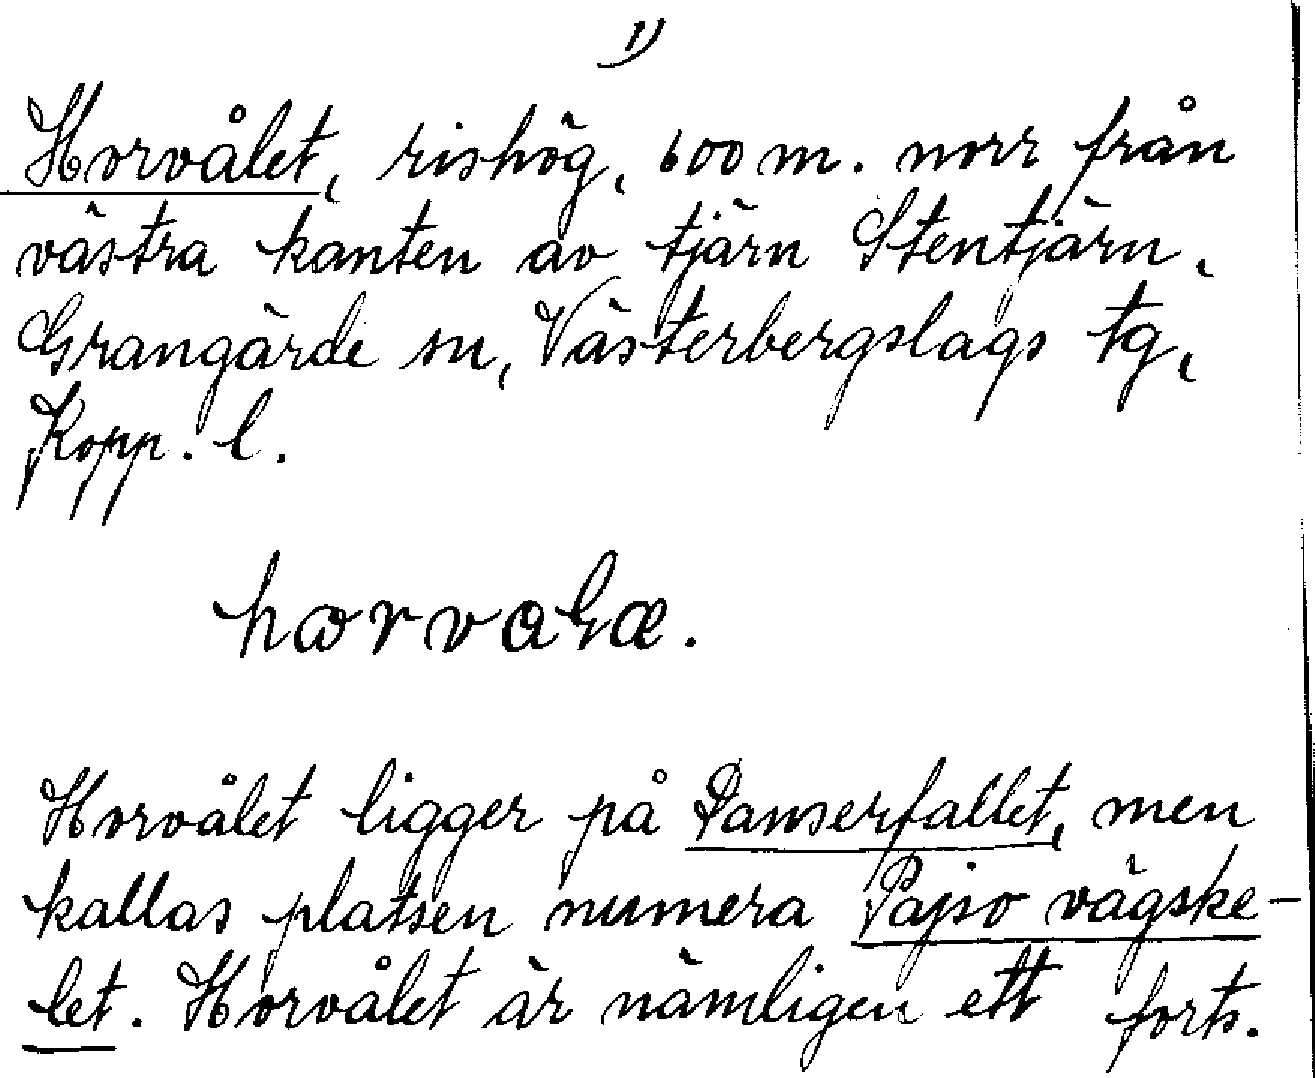 1)
Horvålet, rishög, 600 m. norr från
västra kanten av tjärn Stentjärn,
Grangärde sn, Västerbergslags tg,
Kopp. l.
Horvålet ligger på Panserfallet, men
kallas platsen numera Pajso vägske-
let. Horvålet är nämligen ett forts.